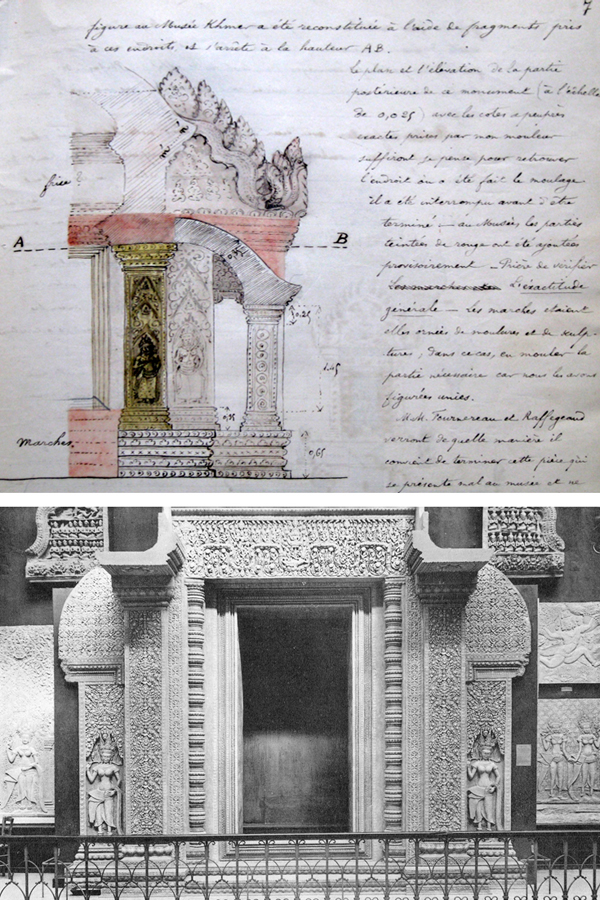 7
figure au Musée Khmer a été reconstituée à l'aide de fragments pris
à ces endroits et s'arrête à la hauteur AB.
Le plan et l'élévation de la partie
postérieure de ce monument (à l'échelle
de 0,025) avec les cotes à peu près
exactes prises par mon mouleur
suffiront je pense pour retrouver
l'endroit où a été fait le moulage
il a été interrompu avant d'être
terminé — au Musée, les parties
teintées de rouge ont été ajoutées
provisoirement — Prière de vérifier
l'exactitude
générale — Les marches étaient
elles ornée de moulures et de sculp-
tures, dans ce cas, en mouler la
partie nécessaire car nous les avons
figurées unies.
M.M. Fournereau et Raffegeaud
verront de quelle manière il
convient de terminer cette pièce qui
se présente mal au musée et ne
A
B
0,25
1,45
Marches.
0,65